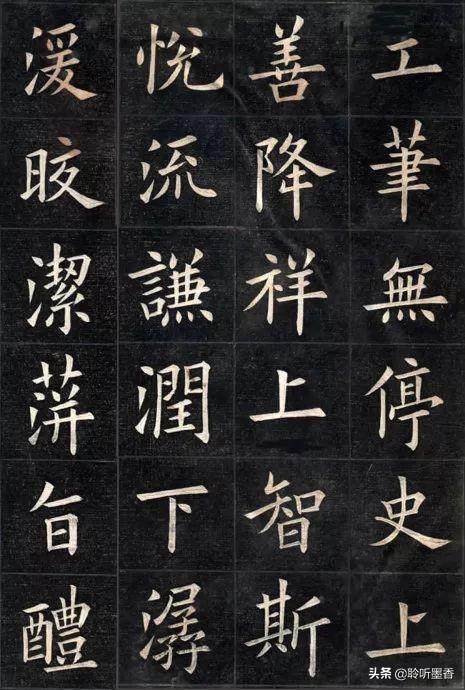 工筆無停史上
善降祥上智斯
悅流謙潤下潺
湲晈潔蓱旨醴
头条 @聆听墨香